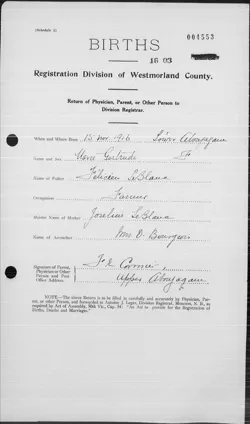 (Schedule A)
004553
BIRTHS
1803
Registration Division of Westmorland County.
Return of Physician, Parent, or Other Person to
Division Registrar.
When and Where Born 15 Nov 1916 Lower Aboujagane
Name and Sex Gertrude F
Name of Father Felicien LeBlanc
Occupation Farmer
Maiden Name of Mother LeBlanc
Name of Accoucheur Mrs D. Bourgeois
Signature of Parent,
Physician or Other
Person and Post
Office Address
Upper Aboujagane
NOTE.—The above Return is to be filled in carefully and accurately by Physician, Parent, or other Person, and forwarded to Antoine J. Leger, Division Registrar, Moncton, N. B., as
required by Act of Assembly, "An Act to provide for the Registration of
Births, Deaths and Marriages."